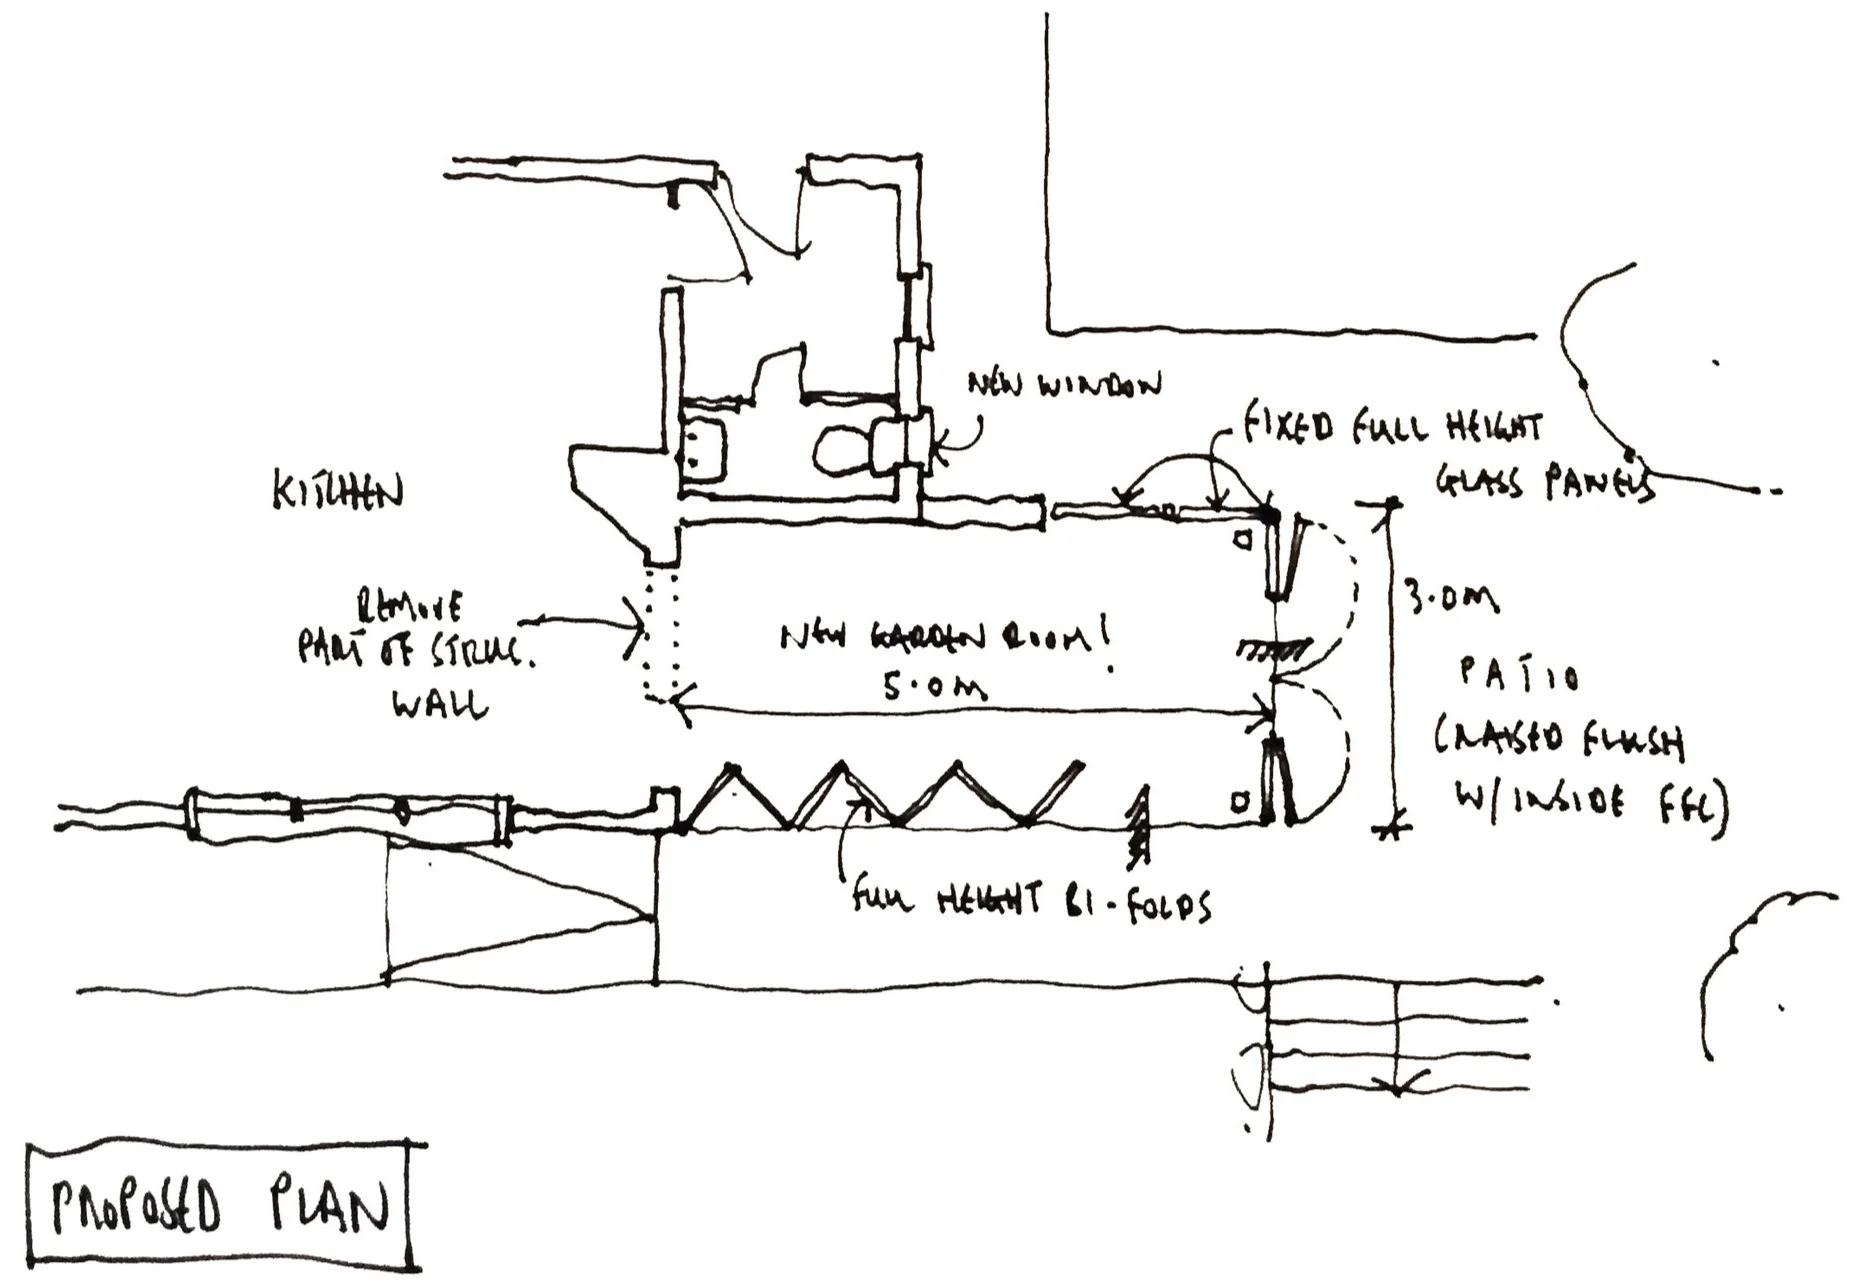 NEW WINDOW
FIXED FULL HEIGHT
GLASS PANELS
KITCHEN
REMOVE
PART OF STRUC.
WALL
NEW GARDEN ROOM!
5.0M
3.0M
PATIO
(RAISED FLUSH
W/INSIDE FFL)
FULL HEIGHT BI-FOLDS
PROPOSED PLAN